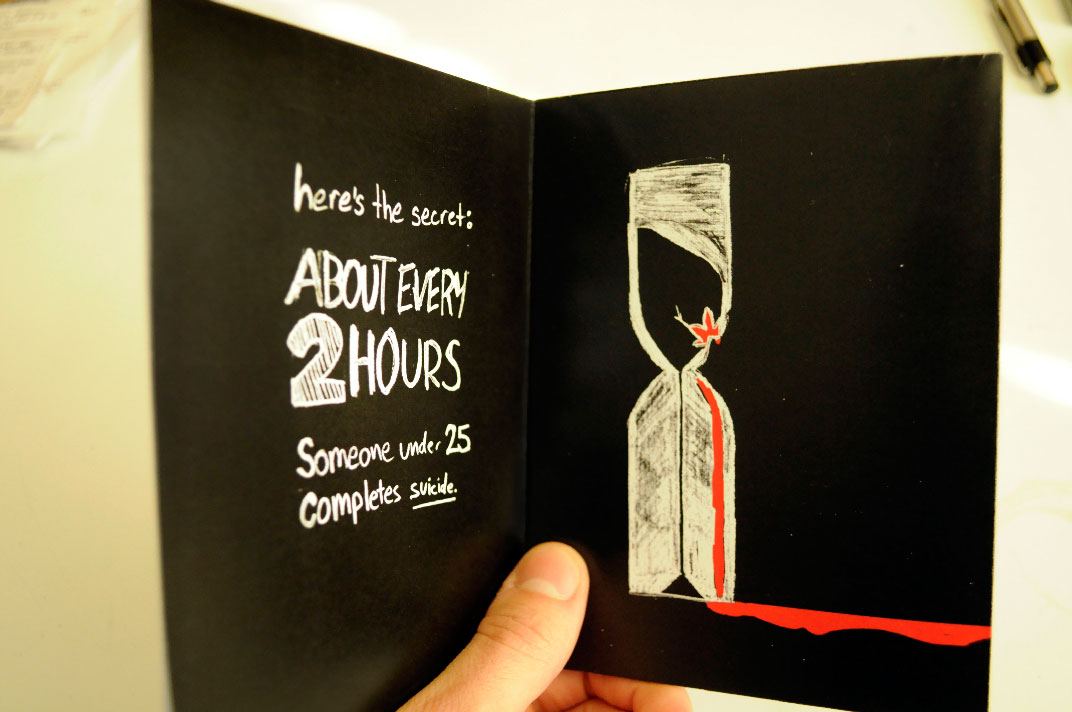 here's the secret:
ABOUT EVERY
2 HOURS
Someone under 25
completes suicide.